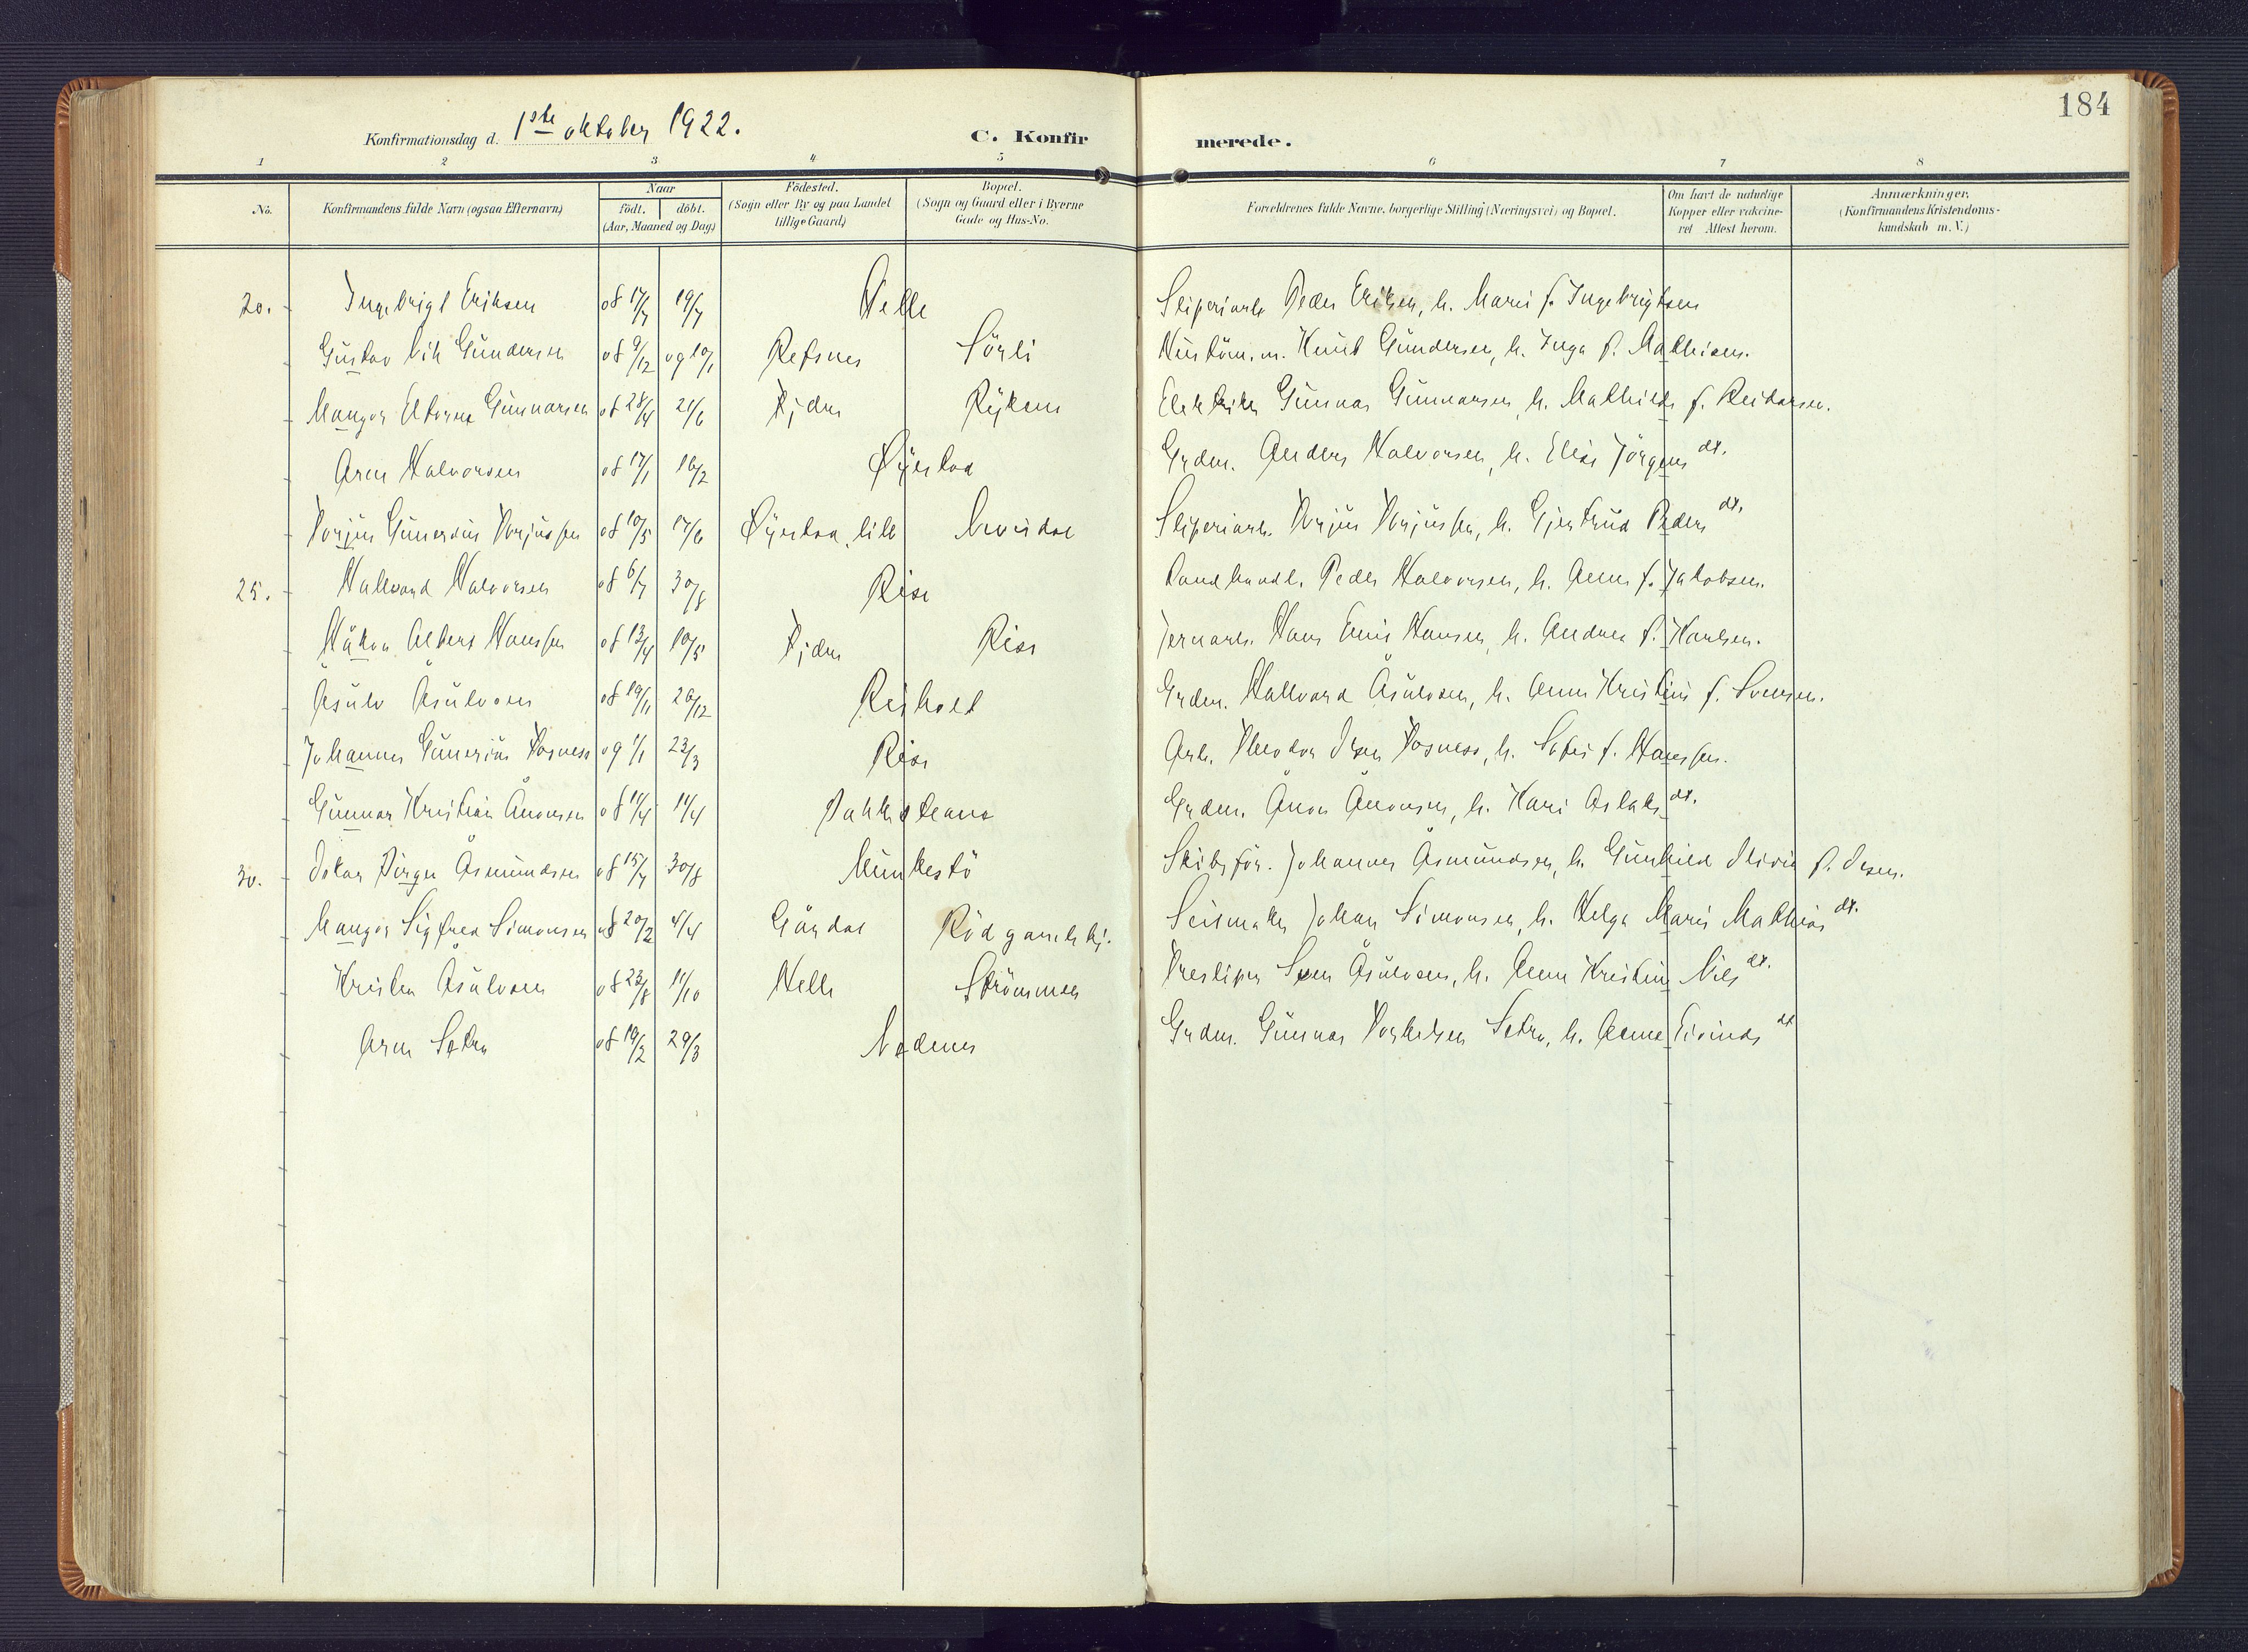 184
Konfirmationsdag d. 1ste oktober 1922. C. Konfirmerede.
1 2 3 4 5 6 7 8
No. Konfirmandens fulde Navn (ogsaa Efternavn) Naar födt. döbt. (Aar, Maaned og Dag.) Födested. (Sogn eller By og paa Landet tillige Gaard.) Bopæl. (Sogn og Gaard eller i Byerne Gade og Hus-No. Forældrenes fulde Navne, borgerlige Stilling (Næringsvei) og Bopæl. Om havt de naturlige Kopper eller vakcineret Attest herom. Anmærkninger. (Konfirmandens Kristendomskundskab m. V.)
20. Ingebrigt Eriksen 08 17/7 19/7 Helle Sliperiarb. Peder Eriksen, h. Marie f. Ingebrigtsen
Gustav Gundersen 08 9/12 09 10/1 Refsnes Sörli Knut Gundersen, h. Inga f. Mathisen.
Mangor Gunnarsen 08 28/4 21/6 Rykene Elektriker Gunnar Gunnarsen, h. Mathilde f. Reidarsen.
Arne Halvorsen 08 17/1 16/2 Øyestad Grdm. Anders Halvorsen, h. Elise Jörgens dt.
Torjus Gunerius Torjussen 08 10/5 17/6 Øyestad, lille Sliperiarb. Torjus Torjussen, h. Gjertrud Peders dt.
25. Hallvard Halvorsen 08 6/7 30/8 Rise Landhandl. Peder Halvorsen, h. Anne f. Jakobsen.
Håkon Albert Hanssen 08 13/4 10/5 Rise Jernarb. Hans Emil Hansen, h. Andrea f. Karlsen.
Åsulv Åsulvsen 08 19/11 26/12 Reiholt Grdm. Hallvard Åsulvsen, h. Anne Kristine f. Svensen.
Johannes Gunerius Vosness 09 1/1 23/3 Rise Arb. Theodor Vosness, h. Sofie f. Hanssen.
Gunnar Kristian Ånonsen 08 11/4 11/4 Grdm. Ånon Ånonsen, h. Kari Aslaks dt.
30. Oskar Birger Åsmundsen 08 15/7 30/8 Munkestö Skibsför. Johannes Åsmundsen, h. Gunhild Olivie f. Olsen.
Mangor Sigfred Simonsen 08 20/2 4/4 Gårdal Seilmaker Johan Simonsen, h. Helga Marie Mathias dt.
Kristen Åsulvsen 08 23/8 11/10 Helle Strömmen Tresliper Sven Åsulvsen, h. Anne Kristine Nils dt.
Arne Setra 08 19/2 29/3 Nedenes Grdm. Gunnar Torkelsen Setra, h. Anne Eivinds dt